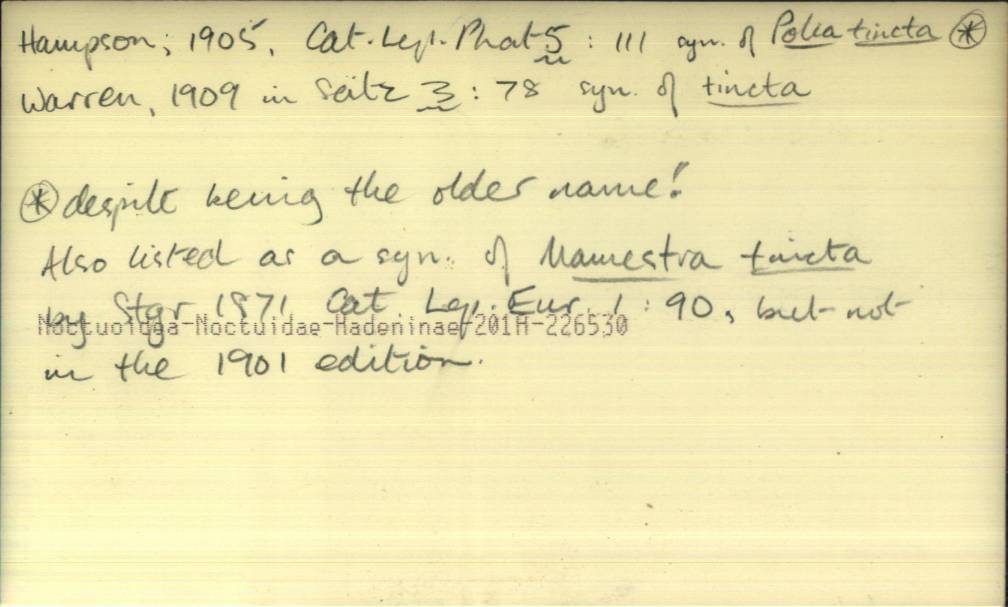 Hampson, 1905, Cat. Lep. Phal 5 : 111 syn. of Polia tincta *
Warren, 1909 in Seitz 3 : 78 syn. of tincta
* despite being the older name!
Also listed as a syn. of Mamestra tincta
by Stgr 1871 Cat Lep. Eur. 1 : 90, but not
Noctuoidea-Noctuidae-Hadeninae-201H-226530
in the 1901 edition.